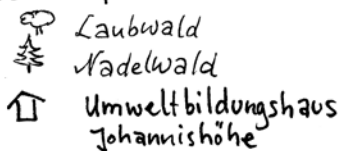 Laubwald
Nadelwald
Umweltbildungshaus
Johannishöhe